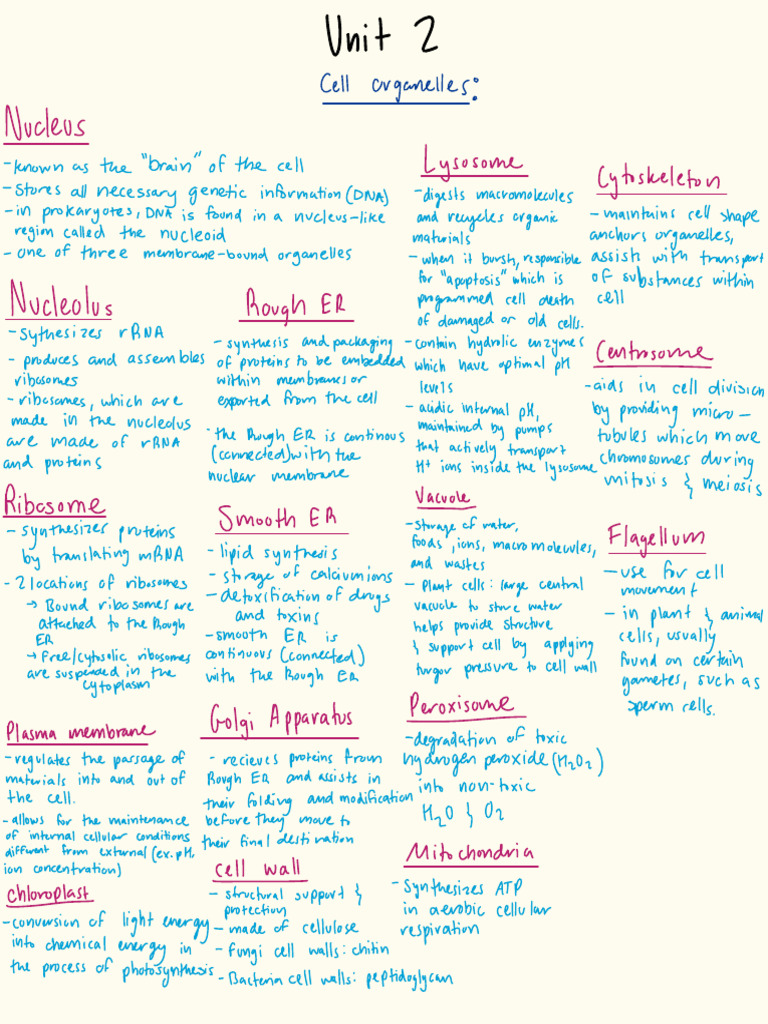 Unit 2
Cell organelles:
Nucleus
-known as the "brain" of the cell
-Stores all necessary genetic information (DNA)
-in prokaryotes, DNA is found in a nucleus-like
region called the nucleoid
- one of three membrane-bound organelles
Nucleolus
-Sythesizes rRNA
- produces and assembles
ribosomes
-ribosomes, which are
made in the nucleolus
are made of rRNA
and proteins
Ribosome
- synthesizes proteins
by translating mRNA
- 2 locations of ribosomes
→ Bound ribosomes are
attached to the Rough
ER
→ Free/cytsolic ribosomes
are suspended in the
cytoplasm
Plasma membrane
-regulates the passage of
materials into and out of
the cell.
-allows for the maintenance
of internal cellular conditions
different from external (ex. pH,
ion concentration)
Chloroplast
-conversion of light energy
into chemical energy in
the process of photosynthesis
Rough ER
- synthesis and packaging
of proteins to be embedded
within membranes or
exported from the cell
• the Rough ER is continous
(connected) with the
nuclear membrane
Smooth ER
- lipid synthesis
- storage of calcium ions
- detoxification of drugs
and toxins
-smooth ER is
continuous (connected)
with the Rough ER
Golgi Apparatus
- recieves proteins from
Rough ER and assists in
their folding and modification
before they move to
their final destination
Cell wall
- structural support &
protection
- made of cellulose
- Fungi cell walls: chitin
- Bacteria cell walls: peptidoglycan
Lysosome
-digests macromolecules
and recycles organic
materials
- when it bursh, responsible
for "apoptosis" which is
programmed cell death
of damaged or old cells.
- contain hydrolic enzymes
which have optimal pH
levels
- acidic internal pH,
maintained by pumps
that actively transport
H+ ions inside the lysosome
Vacuole
-Storage of water,
foods, ions, macromolecules,
and wastes
- Plant cells: large central
vacuole to store water
helps provide structure
& support cell by applying
turgor pressure to cell wall
Peroxisome
-degradation of toxic
hydrogen peroxide (H2O2)
into non-toxic
H2O & O2
Mitochondria
-Synthesizes ATP
in aerobic cellular
respiration
Cytoskeleton
- maintains cell shape
anchors organelles,
assist with transport
of substances within
cell
Centrosome
-aids in cell division
by providing micro-
tubules which move
chromosomes during
mitosis & meiosis
Flagellum
- use for cell
movement
- in plant & animal
cells, usually
found on certain
gametes, such as
sperm cells.